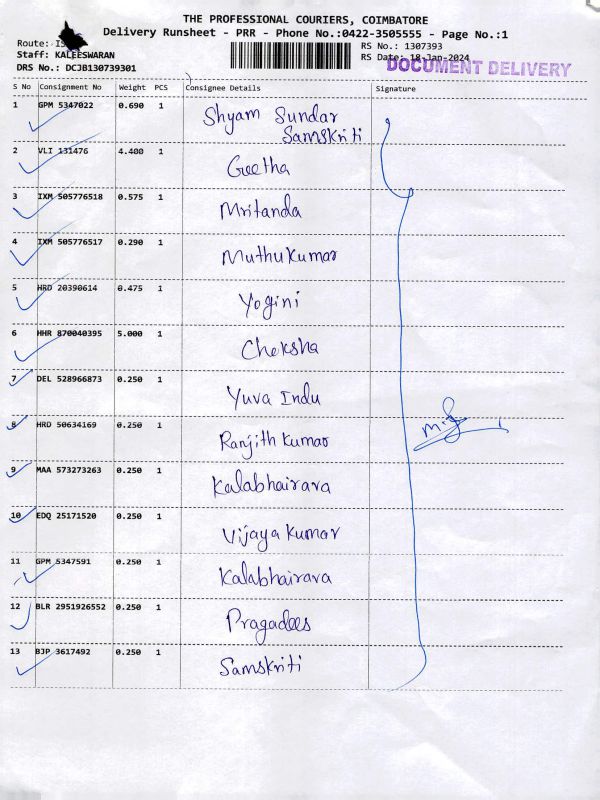 THE PROFESSIONAL COURIERS, COIMBATORE
Delivery Runsheet - PRR - Phone No.:0422-3505555 - Page No.:1
Route:
Staff: KALEESWARAN
DRS No.: DCJB130739301
RS No.: 1307393
RS Date: 18-Jan-2024
DOCUMENT DELIVERY
S No Consignment No Weight PCS Consignee Details Signature
1 GPM 5347022 0.690 1 Shyam Sundar
Samskriti
2 VLI 131476 4.400 1 Geetha
3 IXM 505776518 0.575 1 Mritanda
4 IXM 505776517 0.290 1 Muthu Kumar
5 HRD 20390614 0.475 1 Yogini
6 HHR 870040395 5.000 1 Cheksha
7 DEL 528966873 0.250 1 Yuva Indu
8 HRD 50634169 0.250 1 Ranjith Kumar
9 MAA 573273263 0.250 1 Kalabhairava
10 EDQ 25171520 0.250 1 Vijaya Kumar
11 GPM 5347591 0.250 1 Kalabhairava
12 BLR 2951926552 0.250 1 Pragadees
13 BJP 3617492 0.250 1 Samskriti